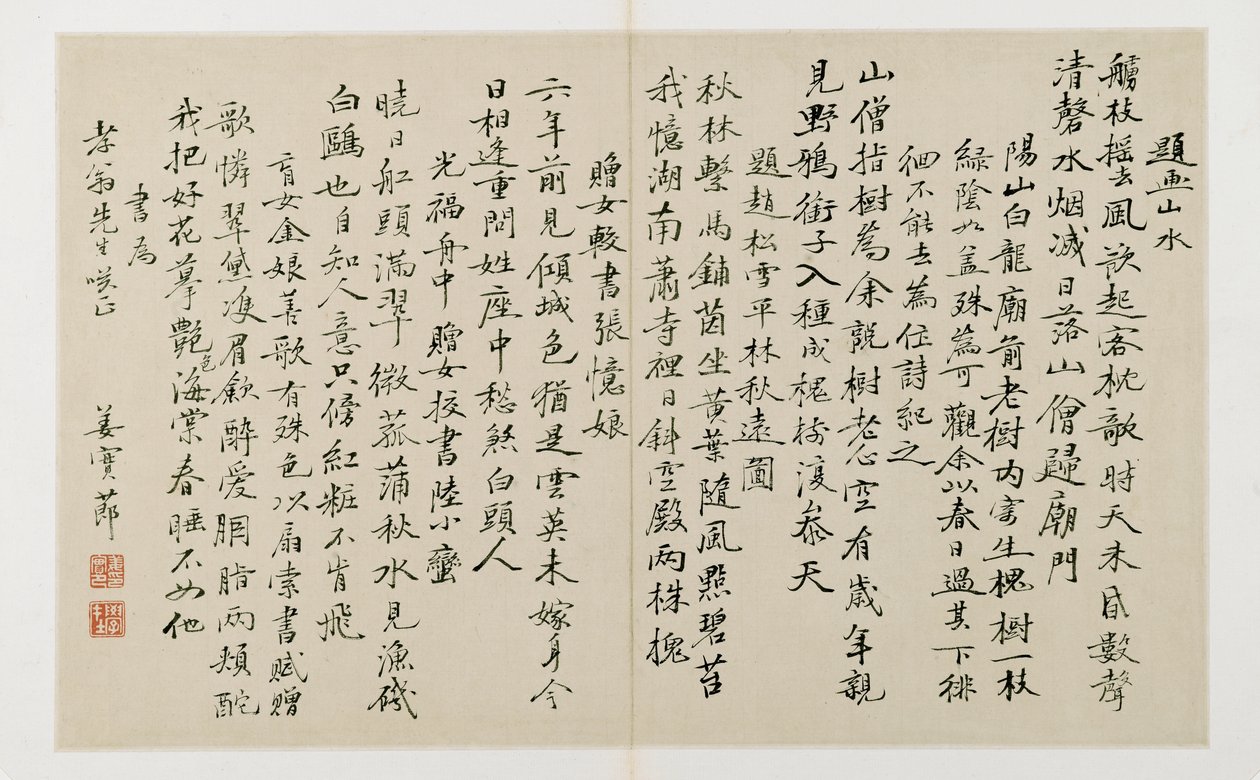 題畫山水
艣枝摇去風欲起客枕欹時天未昏數聲
清磬水烟滅日落山僧歸廟門
陽山白龍廟前老樹内寄生槐樹一枝
綠陰如盖殊為可觀余以春日過其下徘
徊不能去為作詩紀之
山僧指樹為余說樹老心空有歲年親
見野鴉銜子入種成槐樹復參天
題趙松雪平林秋遠圖
秋林繫馬鋪茵坐黃葉隨風點碧苔
我憶湖南蕭寺裡日斜空殿兩株槐
贈女較書張憶娘
六年前見傾城色猶是雲英未嫁身今
日相逢重問姓座中愁煞白頭人
光福舟中贈女校書陸小蠻
曉日舡頭滿翠微菰蒲秋水見漁磯
白鷗也自知人意只傍紅粧不肯飛
盲女金娘善歌有殊色以扇索書賦贈
歌憐翠黛雙眉斂醉愛胭脂兩頰酡
我把好花摹艷色海棠春睡不如他
書為
孝翁先生咲正
姜實節